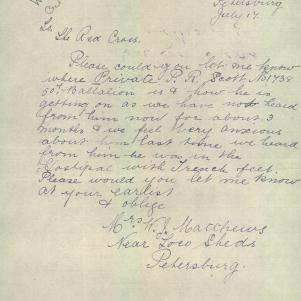 Petersburg
July 17
To
The Red Cross.
Please could you let me know
where Private P. R. Scott No 1738
50th Battalion is & how he is
getting on as we have not heard
from him now for about 3
months & we feel very anxious
about him last time we heard
from him he was in the
Hostipal with Trench feet.
Please would you let me know
at your earliest
& oblige
Mrs W. J. Matthews
Near Loco Sheds
Petersburg.